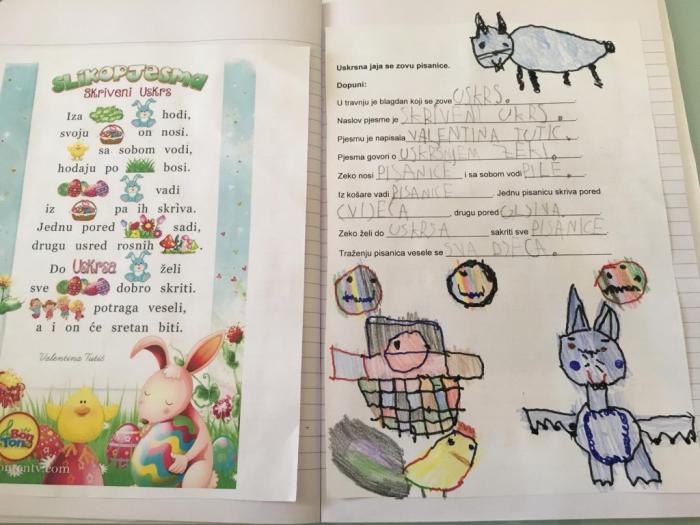 SLIKOPJESMA
SKRIVENI USKRS
Iza hodi,
svoju on nosi.
sa sobom vodi,
hodaju po bosi.
vadi
iz pa ih skriva.
Jednu pored sadi,
drugu usred rosnih
Do Uskrsa želi
sve dobro skriti.
potraga veseli,
a i on će sretan biti.
Valentina Tutić
Uskrsna jaja se zovu pisanice.
Dopuni:
U travnju je blagdan koji se zove USKRS.
Naslov pjesme je SKRIVENI UKRS.
Pjesmu je napisala VALENTINA TUTIC.
Pjesma govori o USKRSNJEM ZEKI.
Zeko nosi PISANICE i sa sobom vodi PILE.
Iz košare vadi PISANICE. Jednu pisanicu skriva pored
CVIJEĆA, drugu pored GLJIVA.
Zeko želi do USKRSA sakriti sve PISANICE
Traženju pisanica vesele se SVA DJECA.